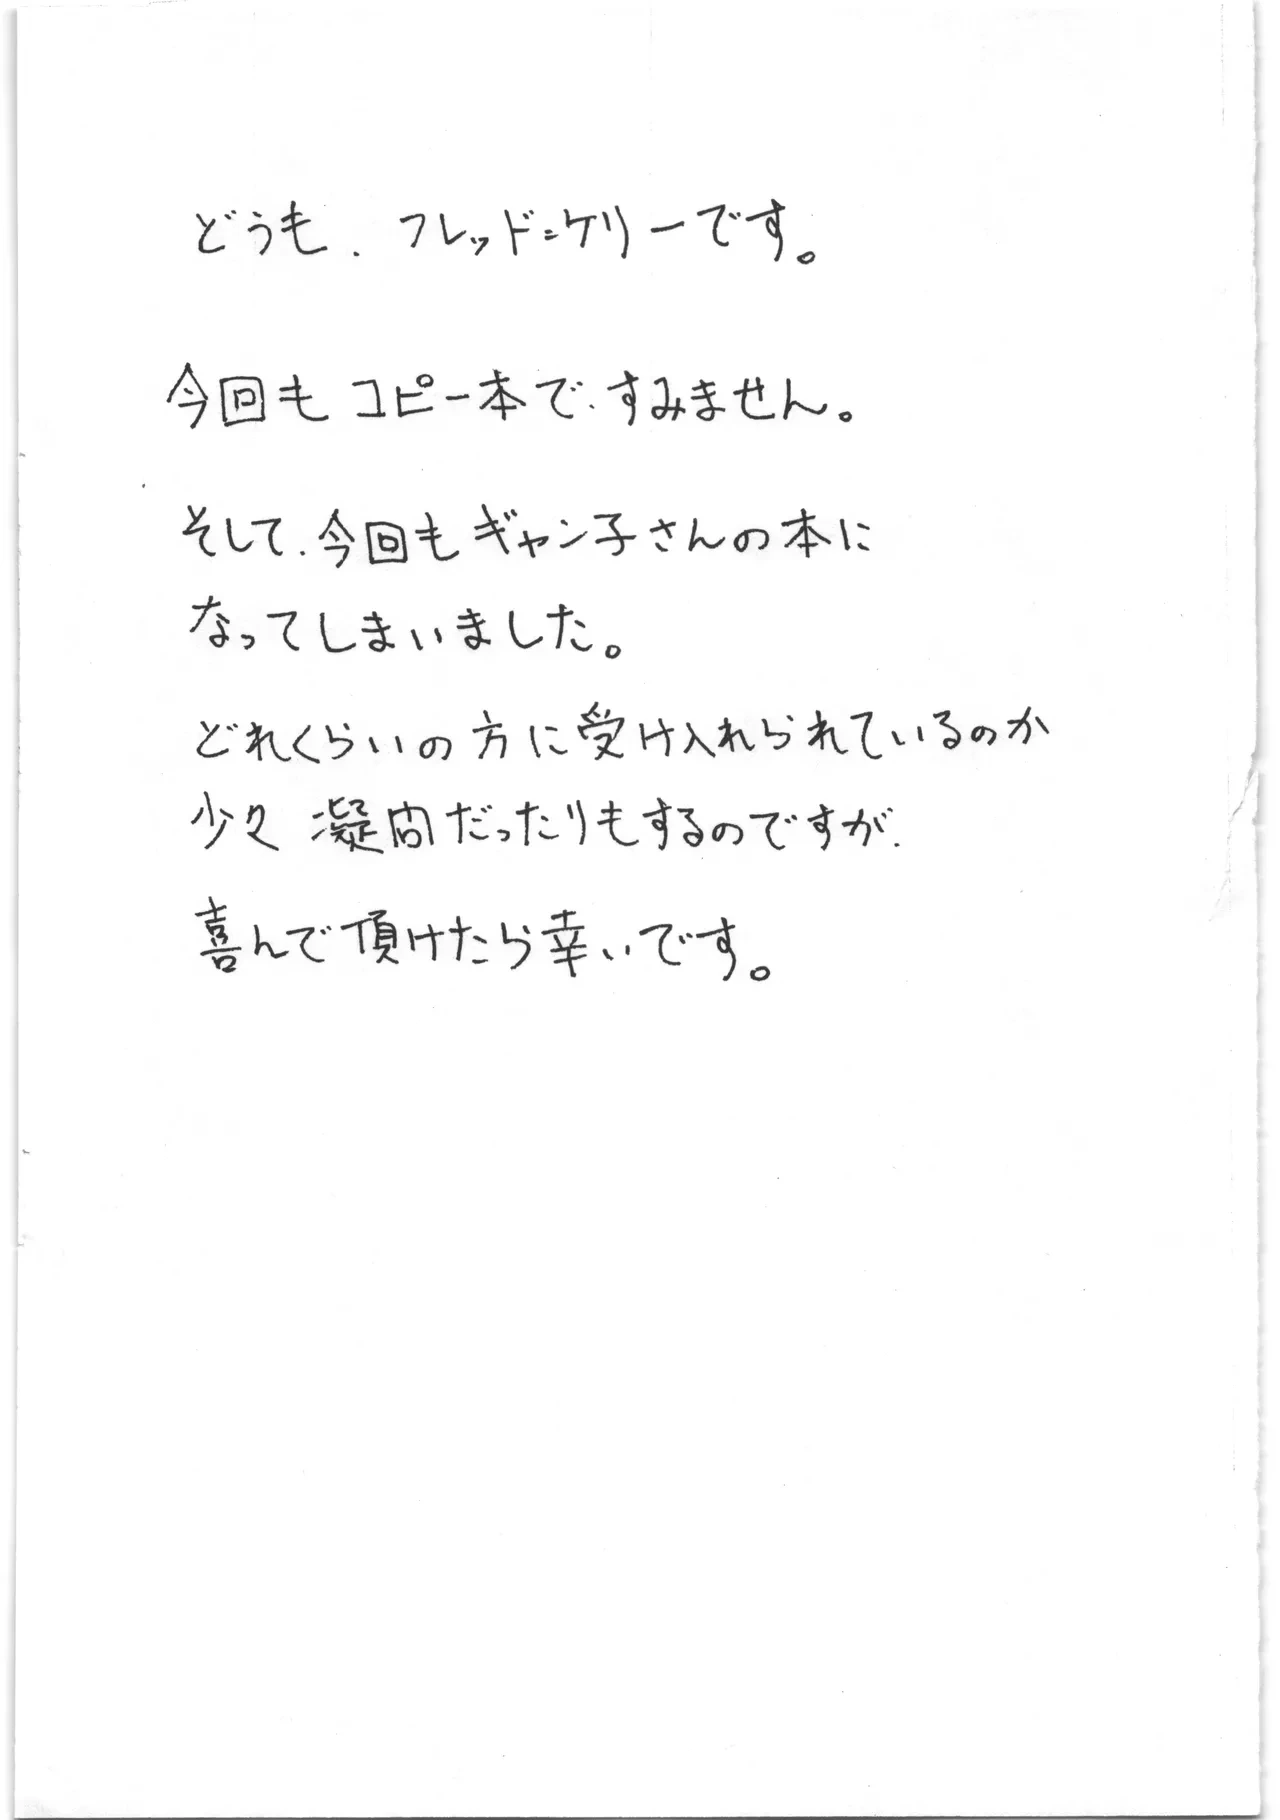 どうも、フレッド=ケリーです。
今回もコピー本で、すみません。
そして、今回もギャン子さんの本に
なってしまいました。
どれくらいの方に受け入れられているのか
少々凝問だったりもするのですが、
喜んで頂けたら幸いです。